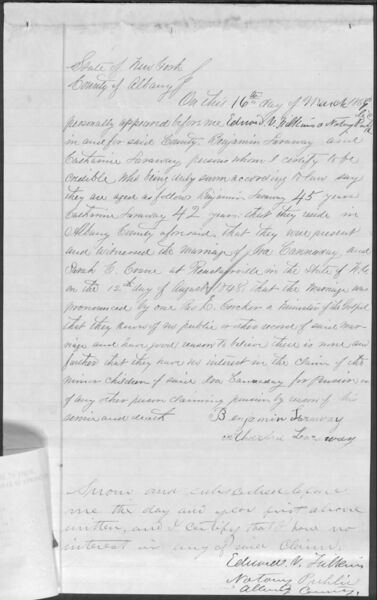 State of New York
County of Albany
On this 16th day of March 186
personally appeared before me Edward V. Filkins a Notary Public
in and for said County, Benjamin Faraway and
Catharine Faraway persons whom I certify to be
credible who being duly sworn according to law say
they are aged as follows Benjamin Faraway 45 years
Catharine Faraway 42 years. that they reside in
Albany County aforesaid, that they were present
and witnessed the marriage of Canaway, and
Sarah E. at in the State of
on the 12th day of August 1848, that the Marriage was
pronounced by one Rev E. Crocker a Minister of the Gospel
that they know of no public or other record of said mar-
riage and have good reason to believe there is none and
further that they have no interest in the claim of the
minor children of said Canaway for Pension or
of any other person claiming pension by reason of his
service and death
Benjamin Faraway
Sworn and subscribed before
me the day and year first above
written, and I certify that I have no
interest in any of said claim.
Edward V. Filkins
Notary Public
Albany County.